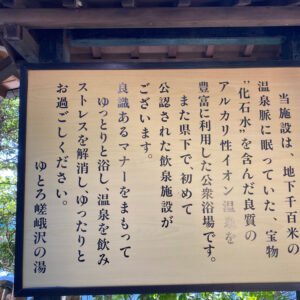 当施設は、地下千百米の
温泉脈に眠っていた、宝物
"化石水"を含んだ良質の
アルカリ性イオン温泉を
豊富に利用した公衆浴場です。
また県下で、初めて
公認された飲泉施設が
ございます。
良識あるマナーをまもって
ゆっとりと浴し、温泉を飲み
ストレスを解消し、ゆったりと
お過ごしください。
ゆとろ嵯峨沢の湯